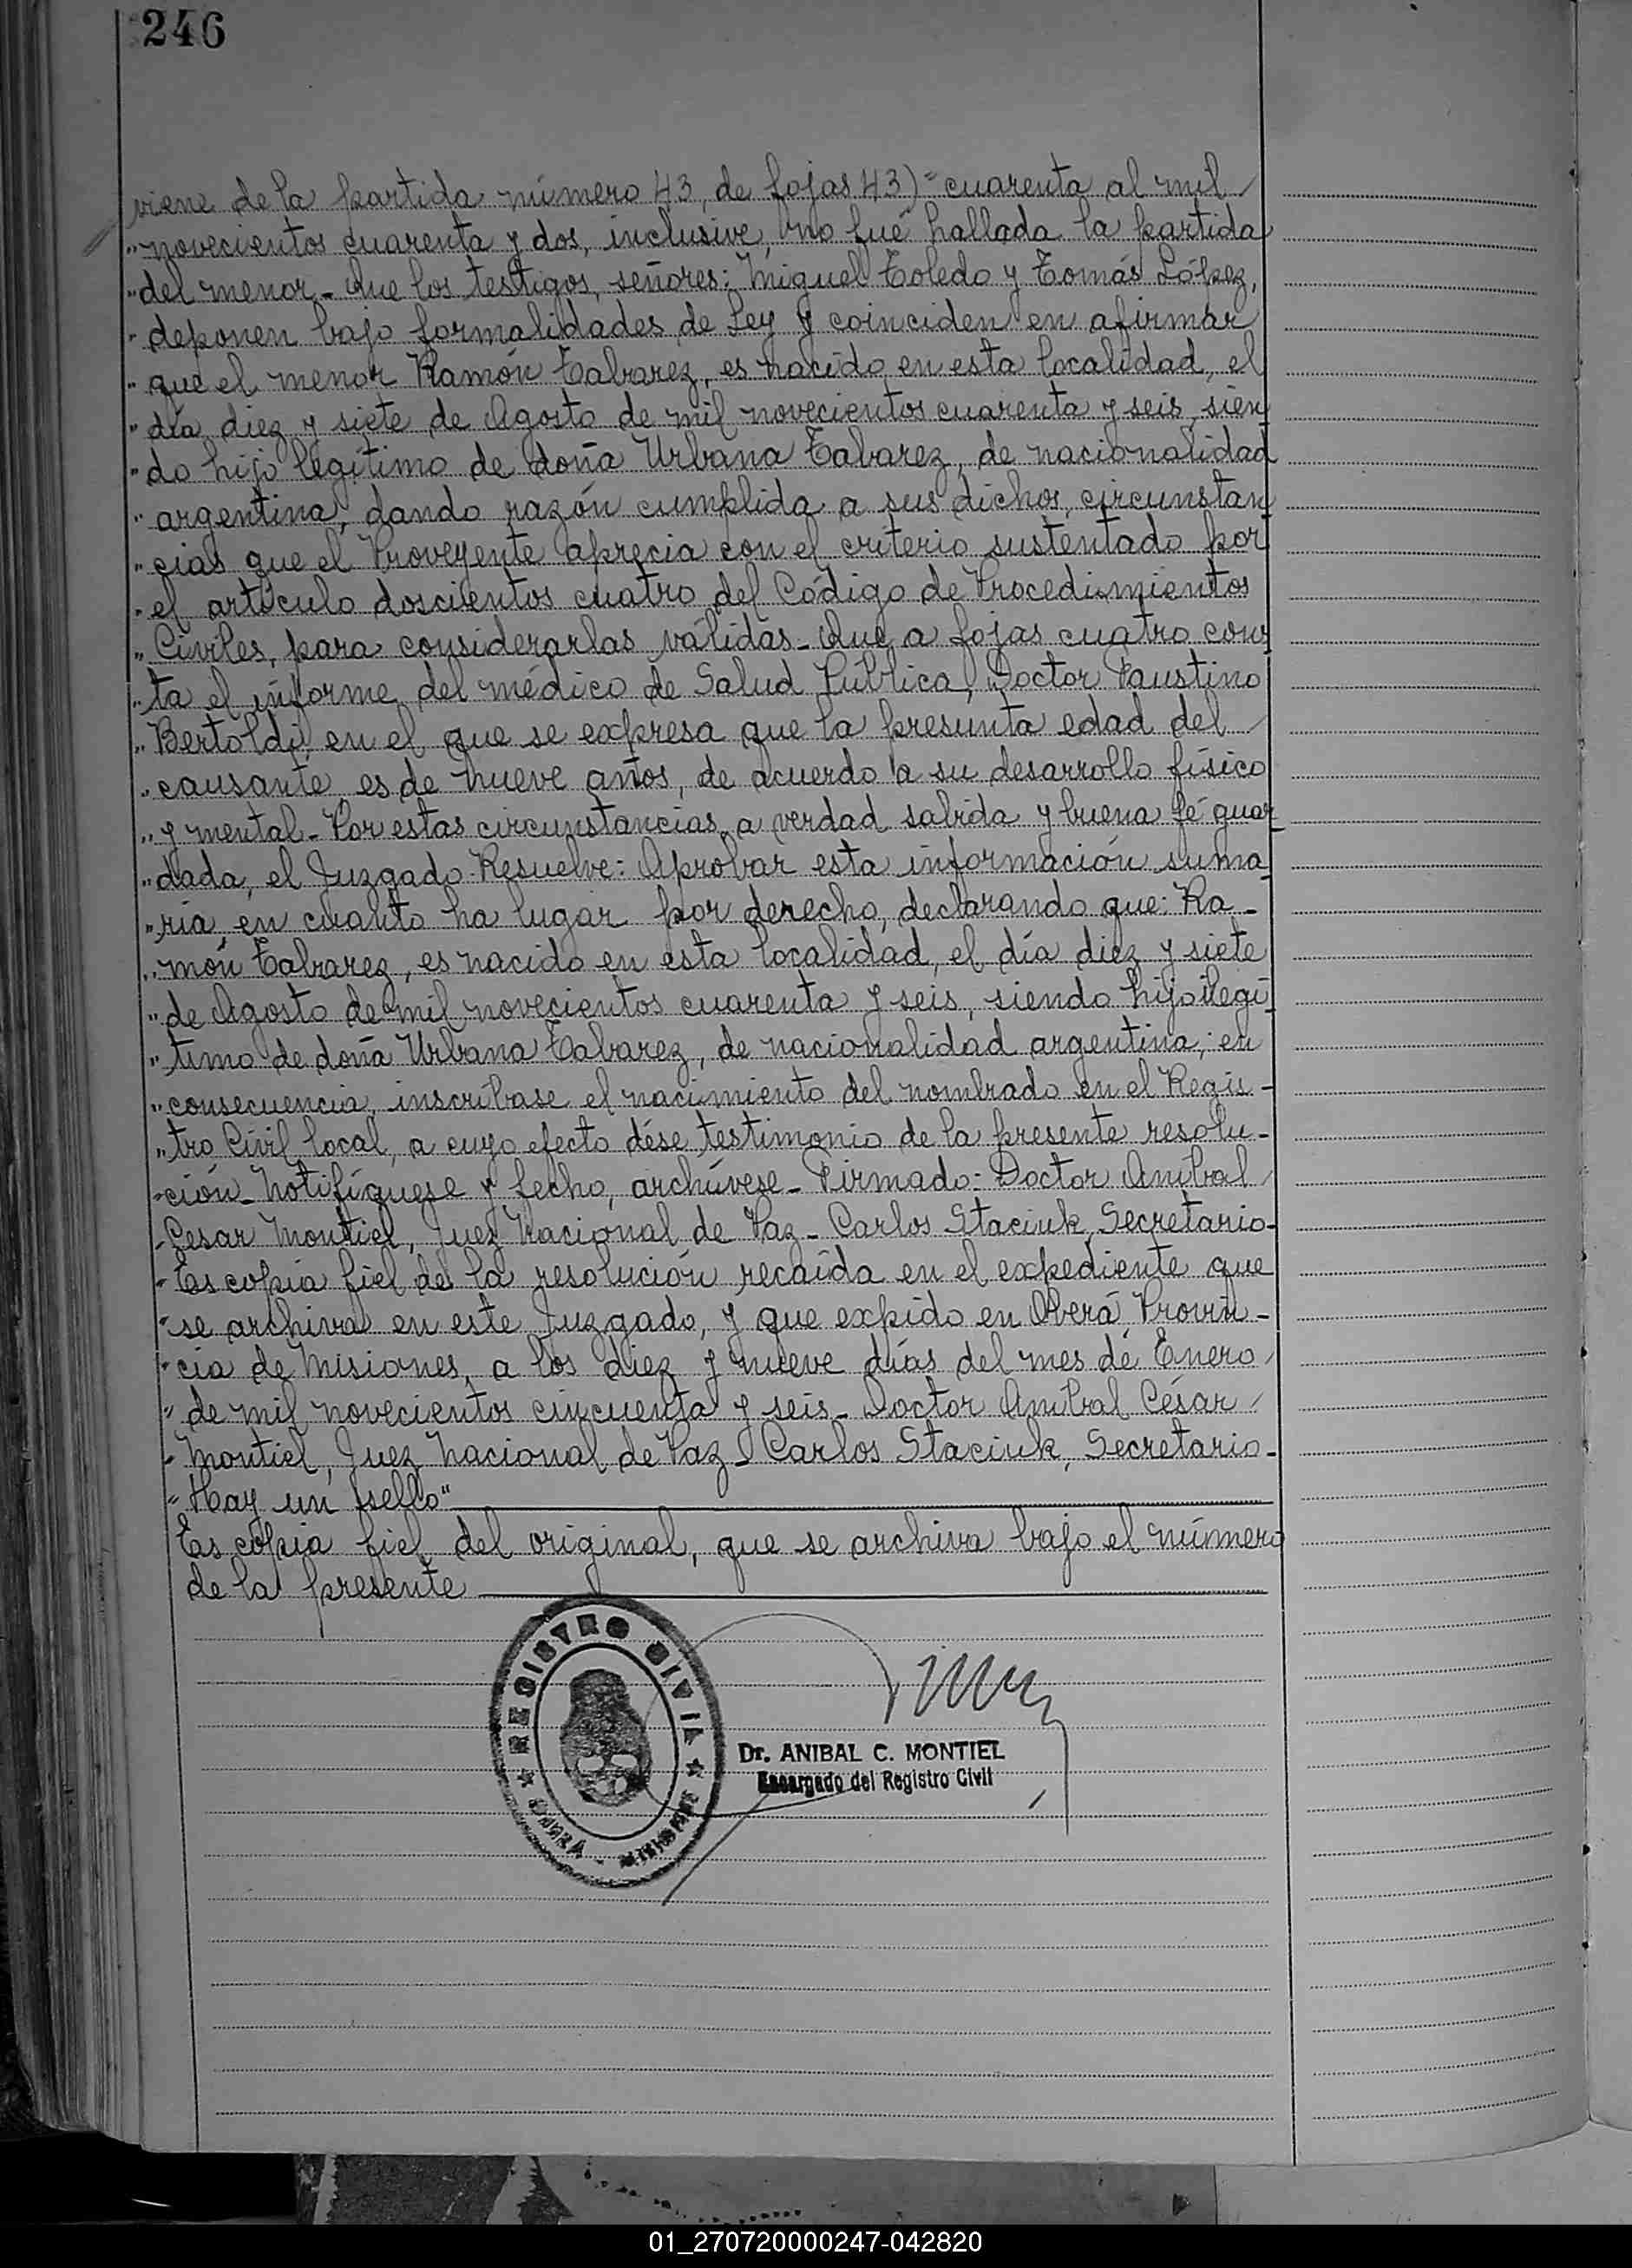 246
viene de la partida número 43, de fojas 43)-"cuarenta al mil
"novecientos cuarenta y dos, inclusive, no fué hallada la partida
"del menor.- Que los testigos, señores: Miguel Toledo y Tomás López,
"deponen bajo formalidades de Ley y coinciden en afirmar
"que el menor Ramón Tabarez, es nacido en esta localidad, el
"día diez y siete de Agosto de mil novecientos cuarenta y seis, sien
"do hijo legítimo de doña Urbana Tabarez, de nacionalidad
"argentina, dando razón cumplida a sus dichos, circunstan
"cias que el Proveyente aprecia con el criterio sustentado por
"el artículo doscientos cuatro del Código de Procedimientos
"Civiles, para considerarlas válidas- Que a fojas cuatro cons
"ta el informe del médico de Salud Pública, Doctor Faustino
"Bertoldi, en el que se expresa que la presunta edad del
"causante es de nueve años, de acuerdo a su desarrollo físico
"y mental- Por estas circunstancias, a verdad sabida y buena fé guar-
"dada, el Juzgado Resuelve: Aprobar esta información suma-
"ria, en cuanto ha lugar por derecho, declarando que: Ra-
"món Tabarez, es nacido en esta localidad, el día diez y siete
"de Agosto de mil novecientos cuarenta y seis, siendo hijo ilegí-
"timo de doña Urbana Tabarez, de nacionalidad argentina; en
"consecuencia, inscríbase el nacimiento del nombrado en el Regis-
"tro Civil local, a cuyo efecto dése testimonio de la presente resolu-
"ción- Notifíquese y fecho, archívese- Firmado: Doctor Anibal
"Cesar Montiel, Juez Nacional de Paz- Carlos Staciuk, Secretario-
"Es copia fiel de la resolución recaída en el expediente que
"se archiva en este Juzgado, y que expido en Oberá, Provin-
"cia de Misiones, a los diez y nueve días del mes de Enero
"de mil novecientos cincuenta y seis- Doctor Anibal César
"Montiel, Juez Nacional de Paz- Carlos Staciuk, Secretario-
"Hay un sello"
Es copia fiel del original, que se archiva bajo el número
de la presente
REGISTRO CIVIL
OBERÁ - MISIONES
Dr. ANIBAL C. MONTIEL
Encargado del Registro Civil
01_270720000247-042820